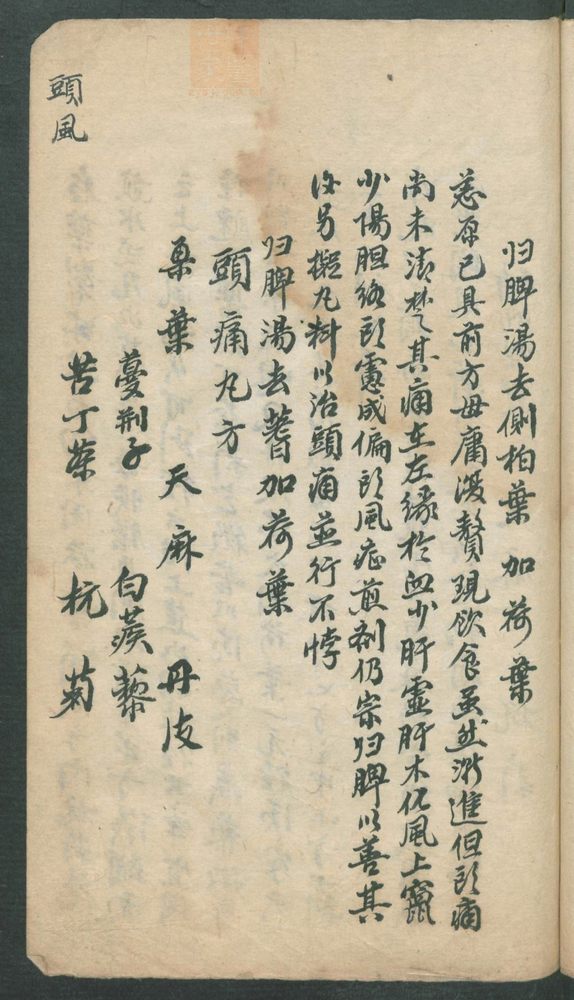 归脾湯去側柏葉加荷葉
恙原已具前方毋庸復贅現飲食虽然渐進但头痛
尚未清楚其痛在左缘於血少肝虚肝木化風上竄
少陽胆络头慮成偏头風症煎剂仍宗归脾以善其
後另擬丸料以治頭痛並行不悖
归脾湯去蓍加荷葉
頭痛丸方
桑葉 天麻 丹皮
蔓荆子 白蒺藜
苦丁茶 杭菊
頭風